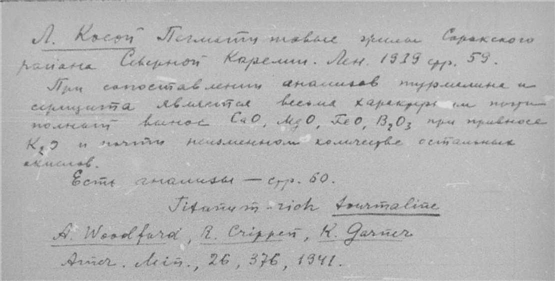 Л. Косой Пегматитовые жилы Сорокского
района Северной Карелии. Лен. 1939 стр. 59.
При сопоставлении анализов турмалина и
серицита является весьма характерным почти
полный вынос CaO, MgO, FeO, B2O3 при привносе
K2O и почти неизменном количестве остальных
окислов.
Есть анализы — стр. 60.
Titanium-rich tourmaline
A. Woodford, R. Crippen, K. Garner
Amer. Min., 26, 376, 1941.